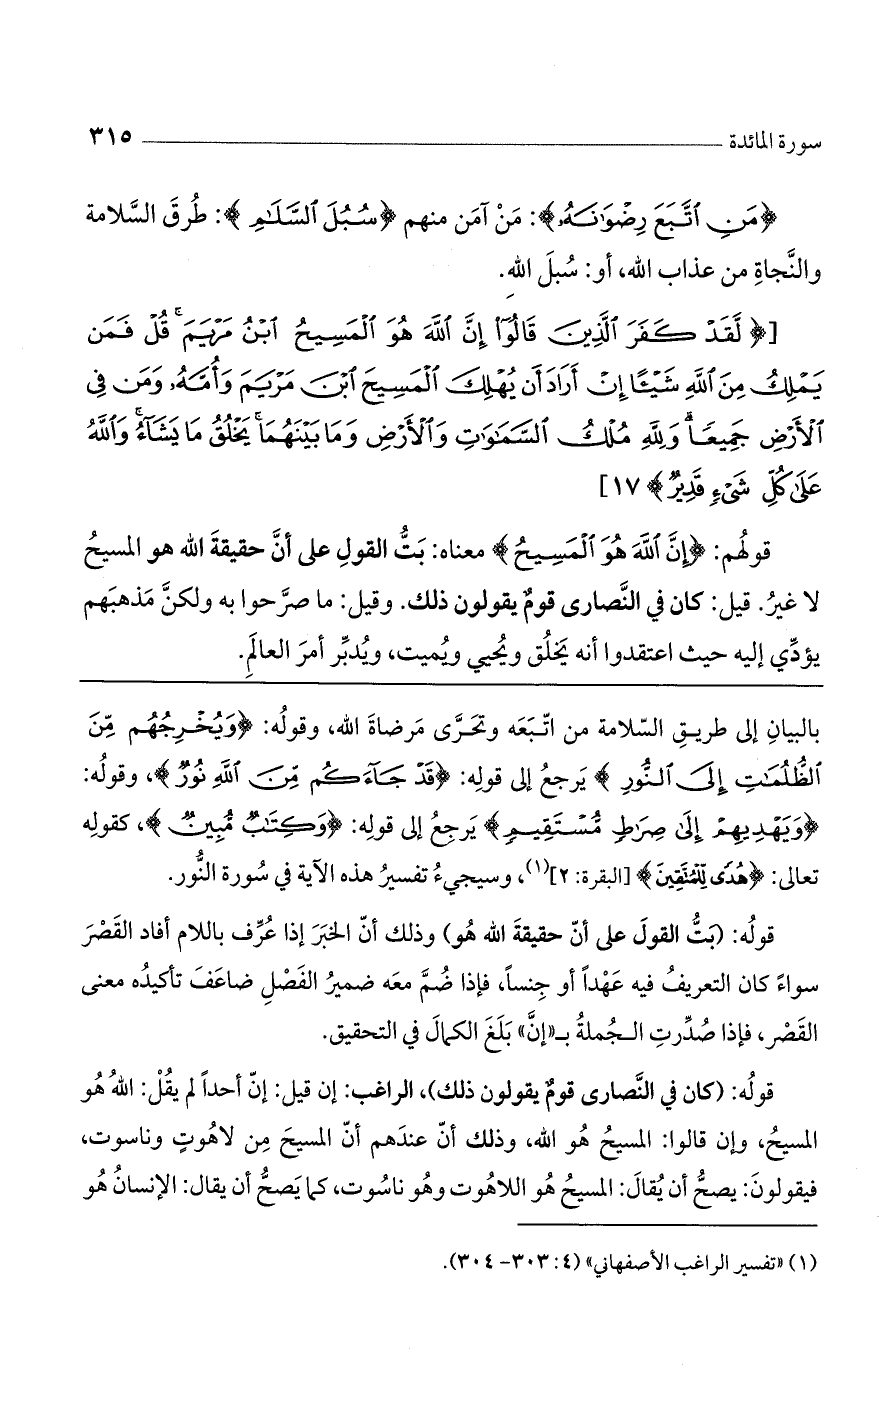 سورة المائدة ٣١٥
﴿مَنِ ٱتَّبَعَ رِضْوَٰنَهُۥ﴾: مَنْ آمَن منهم ﴿سُبُلَ ٱلسَّلَٰمِ﴾: طُرقَ السَّلامة
والنَّجاةِ من عذاب الله، أو: سُبلَ اللهِ.
[﴿لَّقَدْ كَفَرَ ٱلَّذِينَ قَالُوٓا۟ إِنَّ ٱللَّهَ هُوَ ٱلْمَسِيحُ ٱبْنُ مَرْيَمَ ۚ قُلْ فَمَن
يَمْلِكُ مِنَ ٱللَّهِ شَيْـًٔا إِنْ أَرَادَ أَن يُهْلِكَ ٱلْمَسِيحَ ٱبْنَ مَرْيَمَ وَأُمَّهُۥ وَمَن فِى
ٱلْأَرْضِ جَمِيعًا ۗ وَلِلَّهِ مُلْكُ ٱلسَّمَٰوَٰتِ وَٱلْأَرْضِ وَمَا بَيْنَهُمَا ۚ يَخْلُقُ مَا يَشَآءُ ۚ وَٱللَّهُ
عَلَىٰ كُلِّ شَىْءٍ قَدِيرٌ﴾ ١٧]
قولهُم: ﴿إِنَّ ٱللَّهَ هُوَ ٱلْمَسِيحُ﴾ معناه: بَتُّ القولِ على أنَّ حقيقةَ الله هو المسيحُ
لا غيرُ. قيل: كان في النَّصارى قومٌ يقولون ذلك. وقيل: ما صرَّحوا به ولكنَّ مَذهبَهم
يؤدِّي إليه حيث اعتقدوا أنه يَخلُق ويُحيي ويُميت، ويُدبِّر أمرَ العالَمِ.
بالبيانِ إلى طريقِ السّلامة من اتّبَعَه وتحَرَّى مَرضاةَ الله، وقولُه: ﴿وَيُخْرِجُهُم مِّنَ
ٱلظُّلُمَٰتِ إِلَى ٱلنُّورِ﴾ يَرجعُ إلى قولِه: ﴿قَدْ جَآءَكُم مِّنَ ٱللَّهِ نُورٌ﴾، وقولُه:
﴿وَيَهْدِيهِمْ إِلَىٰ صِرَٰطٍ مُّسْتَقِيمٍ﴾ يَرجعُ إلى قولِه: ﴿وَكِتَٰبٌ مُّبِينٌ﴾، كقولِه
تعالى: ﴿هُدًى لِّلْمُتَّقِينَ﴾ [البقرة: ٢](١)، وسيجيءُ تفسيرُ هذه الآية في سُورة النُّور.
قولُه: (بَتُّ القولَ على أنّ حقيقةَ الله هُو) وذلك أنّ الخبَرَ إذا عُرِّف باللام أفاد القَصْرَ
سواءً كان التعريفُ فيه عَهْداً أو جِنساً، فإذا ضُمَّ معَه ضميرُ الفَصْلِ ضاعَفَ تأكيدُه معنى
القَصْر، فإذا صُدِّرتِ الـجُملةُ بـ«إنَّ» بَلَغَ الكمالَ في التحقيق.
قولُه: (كان في النَّصارى قومٌ يقولون ذلك)، الراغب: إن قيل: إنّ أحداً لم يقُلْ: اللهُ هُو
المسيحُ، وإن قالوا: المسيحُ هُو الله، وذلك أنّ عندَهم أنّ المسيحَ مِن لاهُوتٍ وناسوت،
فيقولونَ: يصحُّ أن يُقالَ: المسيحُ هُو اللاهُوت وهُو ناسُوت، كما يَصحُّ أن يقال: الإنسانُ هُو
(١) «تفسير الراغب الأصفهاني» (٤: ٣٠٣- ٣٠٤).